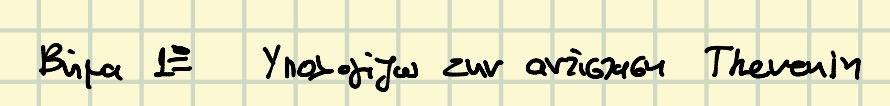 Βήμα 1Ξ Υπολογίζω την αντίσταση Thevenin